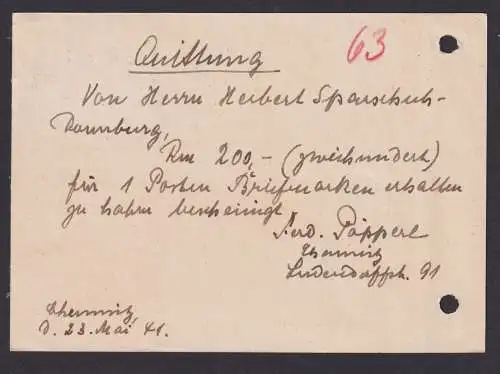 Quittung
63
Von Herrn Herbert Sparschuh-
Naumburg,
Rm 200,- (zweihundert)
für 1 Posten Briefmarken erhalten
zu haben bescheinigt
Ferd. Pöpperl
Chemnitz
Ludendorffstr. 91
Chemnitz,
d. 23. Mai 41.